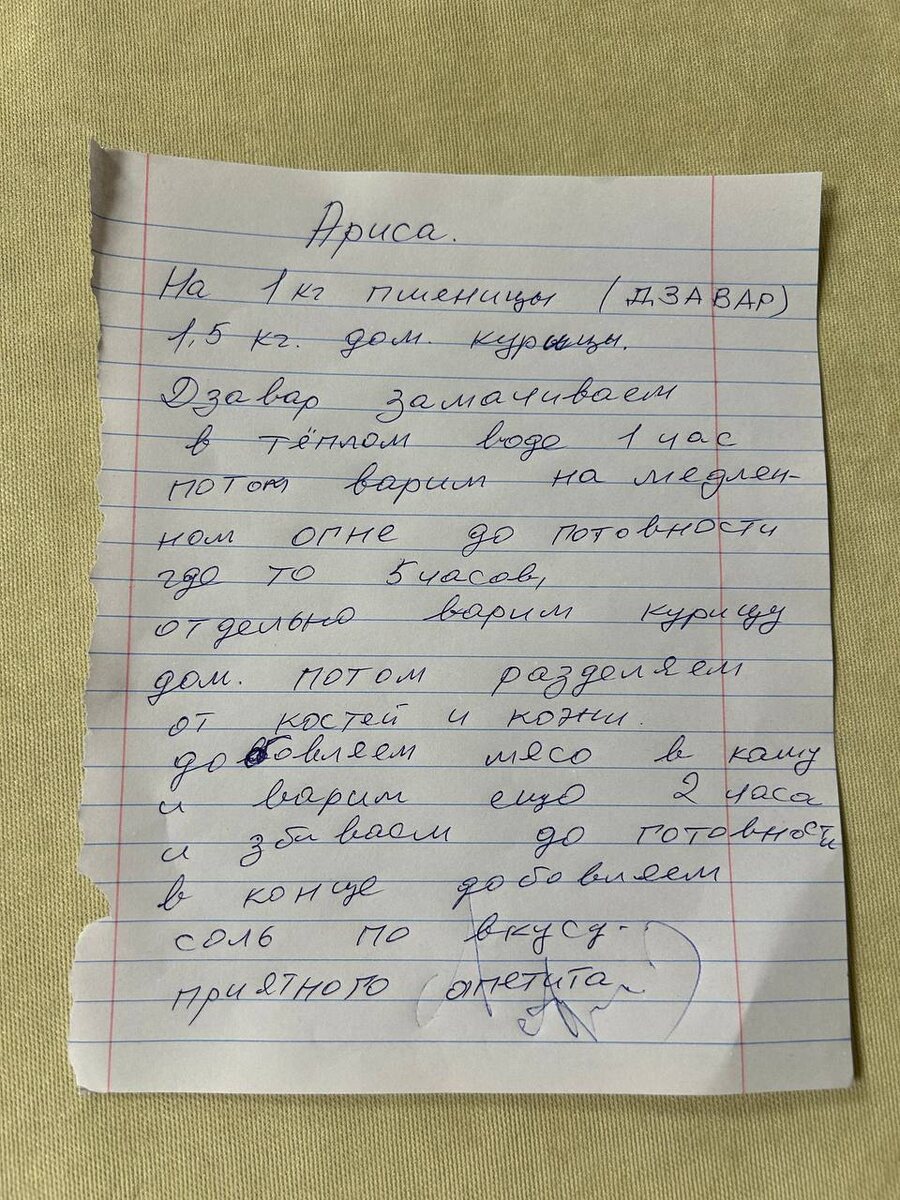 Ариса.
На 1 кг пшеницы (ДЗАВАР)
1,5 кг. дом. курицы.
Дзавар замачиваем
в тёплом воде 1 час
потом варим на медлен-
ном огне до готовности
где то 5 часов,
отдельно варим курицу
дом. потом разделяем
от костей и кожи.
добовляем мясо в кашу
и варим ещо 2 часа
и збиваем до готовности
в конце добовляем
соль по вкусу.
приятного апетита